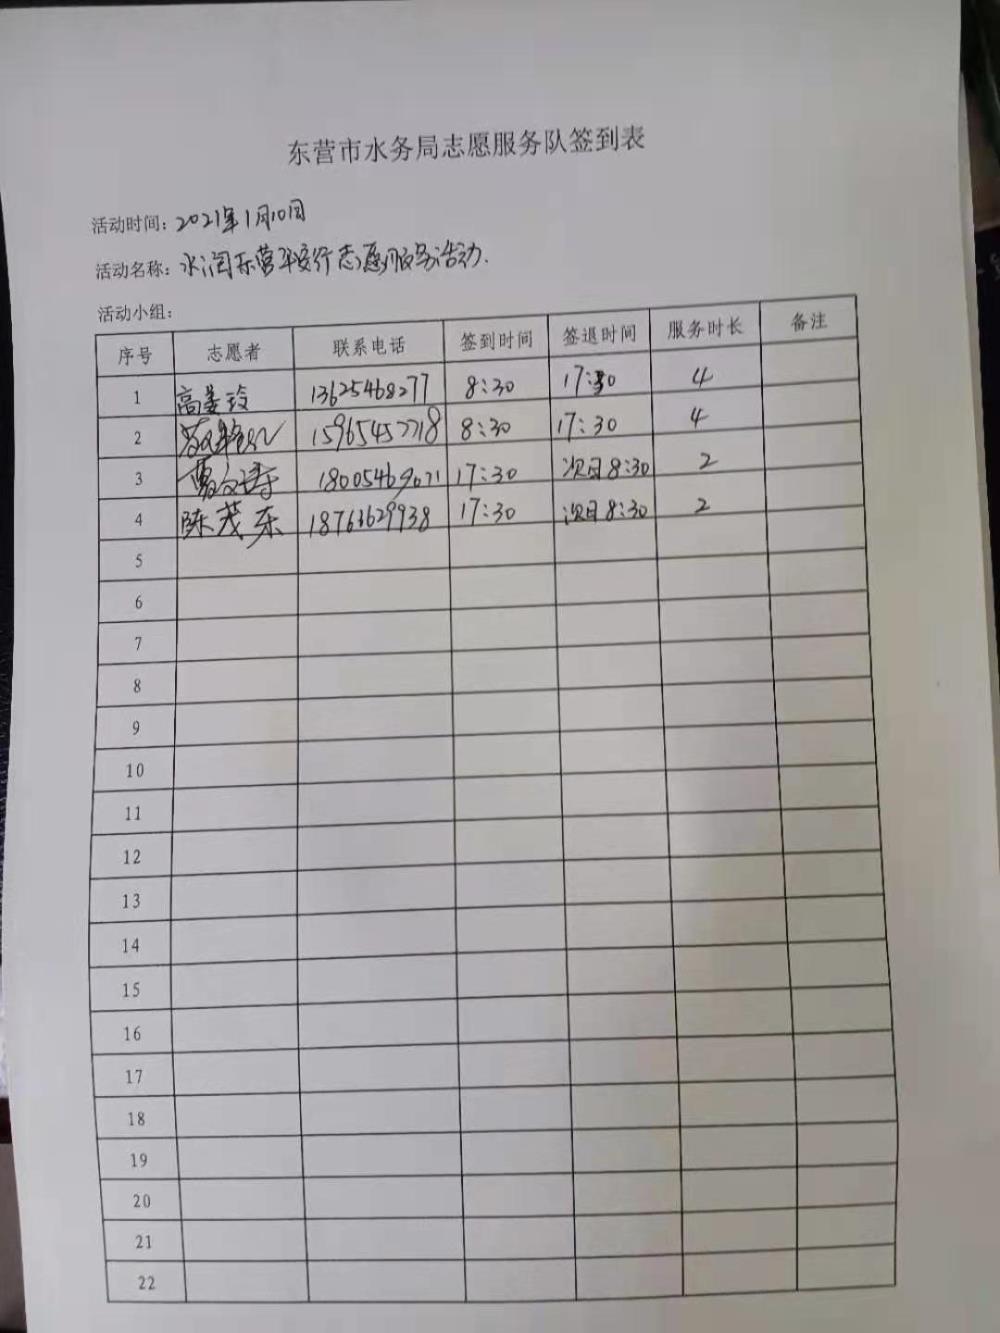 东营市水务局志愿服务队签到表
活动时间：2021年1月10日
活动名称：水润东营平安行志愿服务活动.
活动小组：
序号 志愿者 联系电话 签到时间 签退时间 服务时长 备注
1 高姜玲 13625468277 8:30 17:30 4
2 15965457718 8:30 17:30 4
3 18005469071 17:30 次日8:30 2
4 陈茂东 18763629938 17:30 次日8:30 2
5
6
7
8
9
10
11
12
13
14
15
16
17
18
19
20
21
22